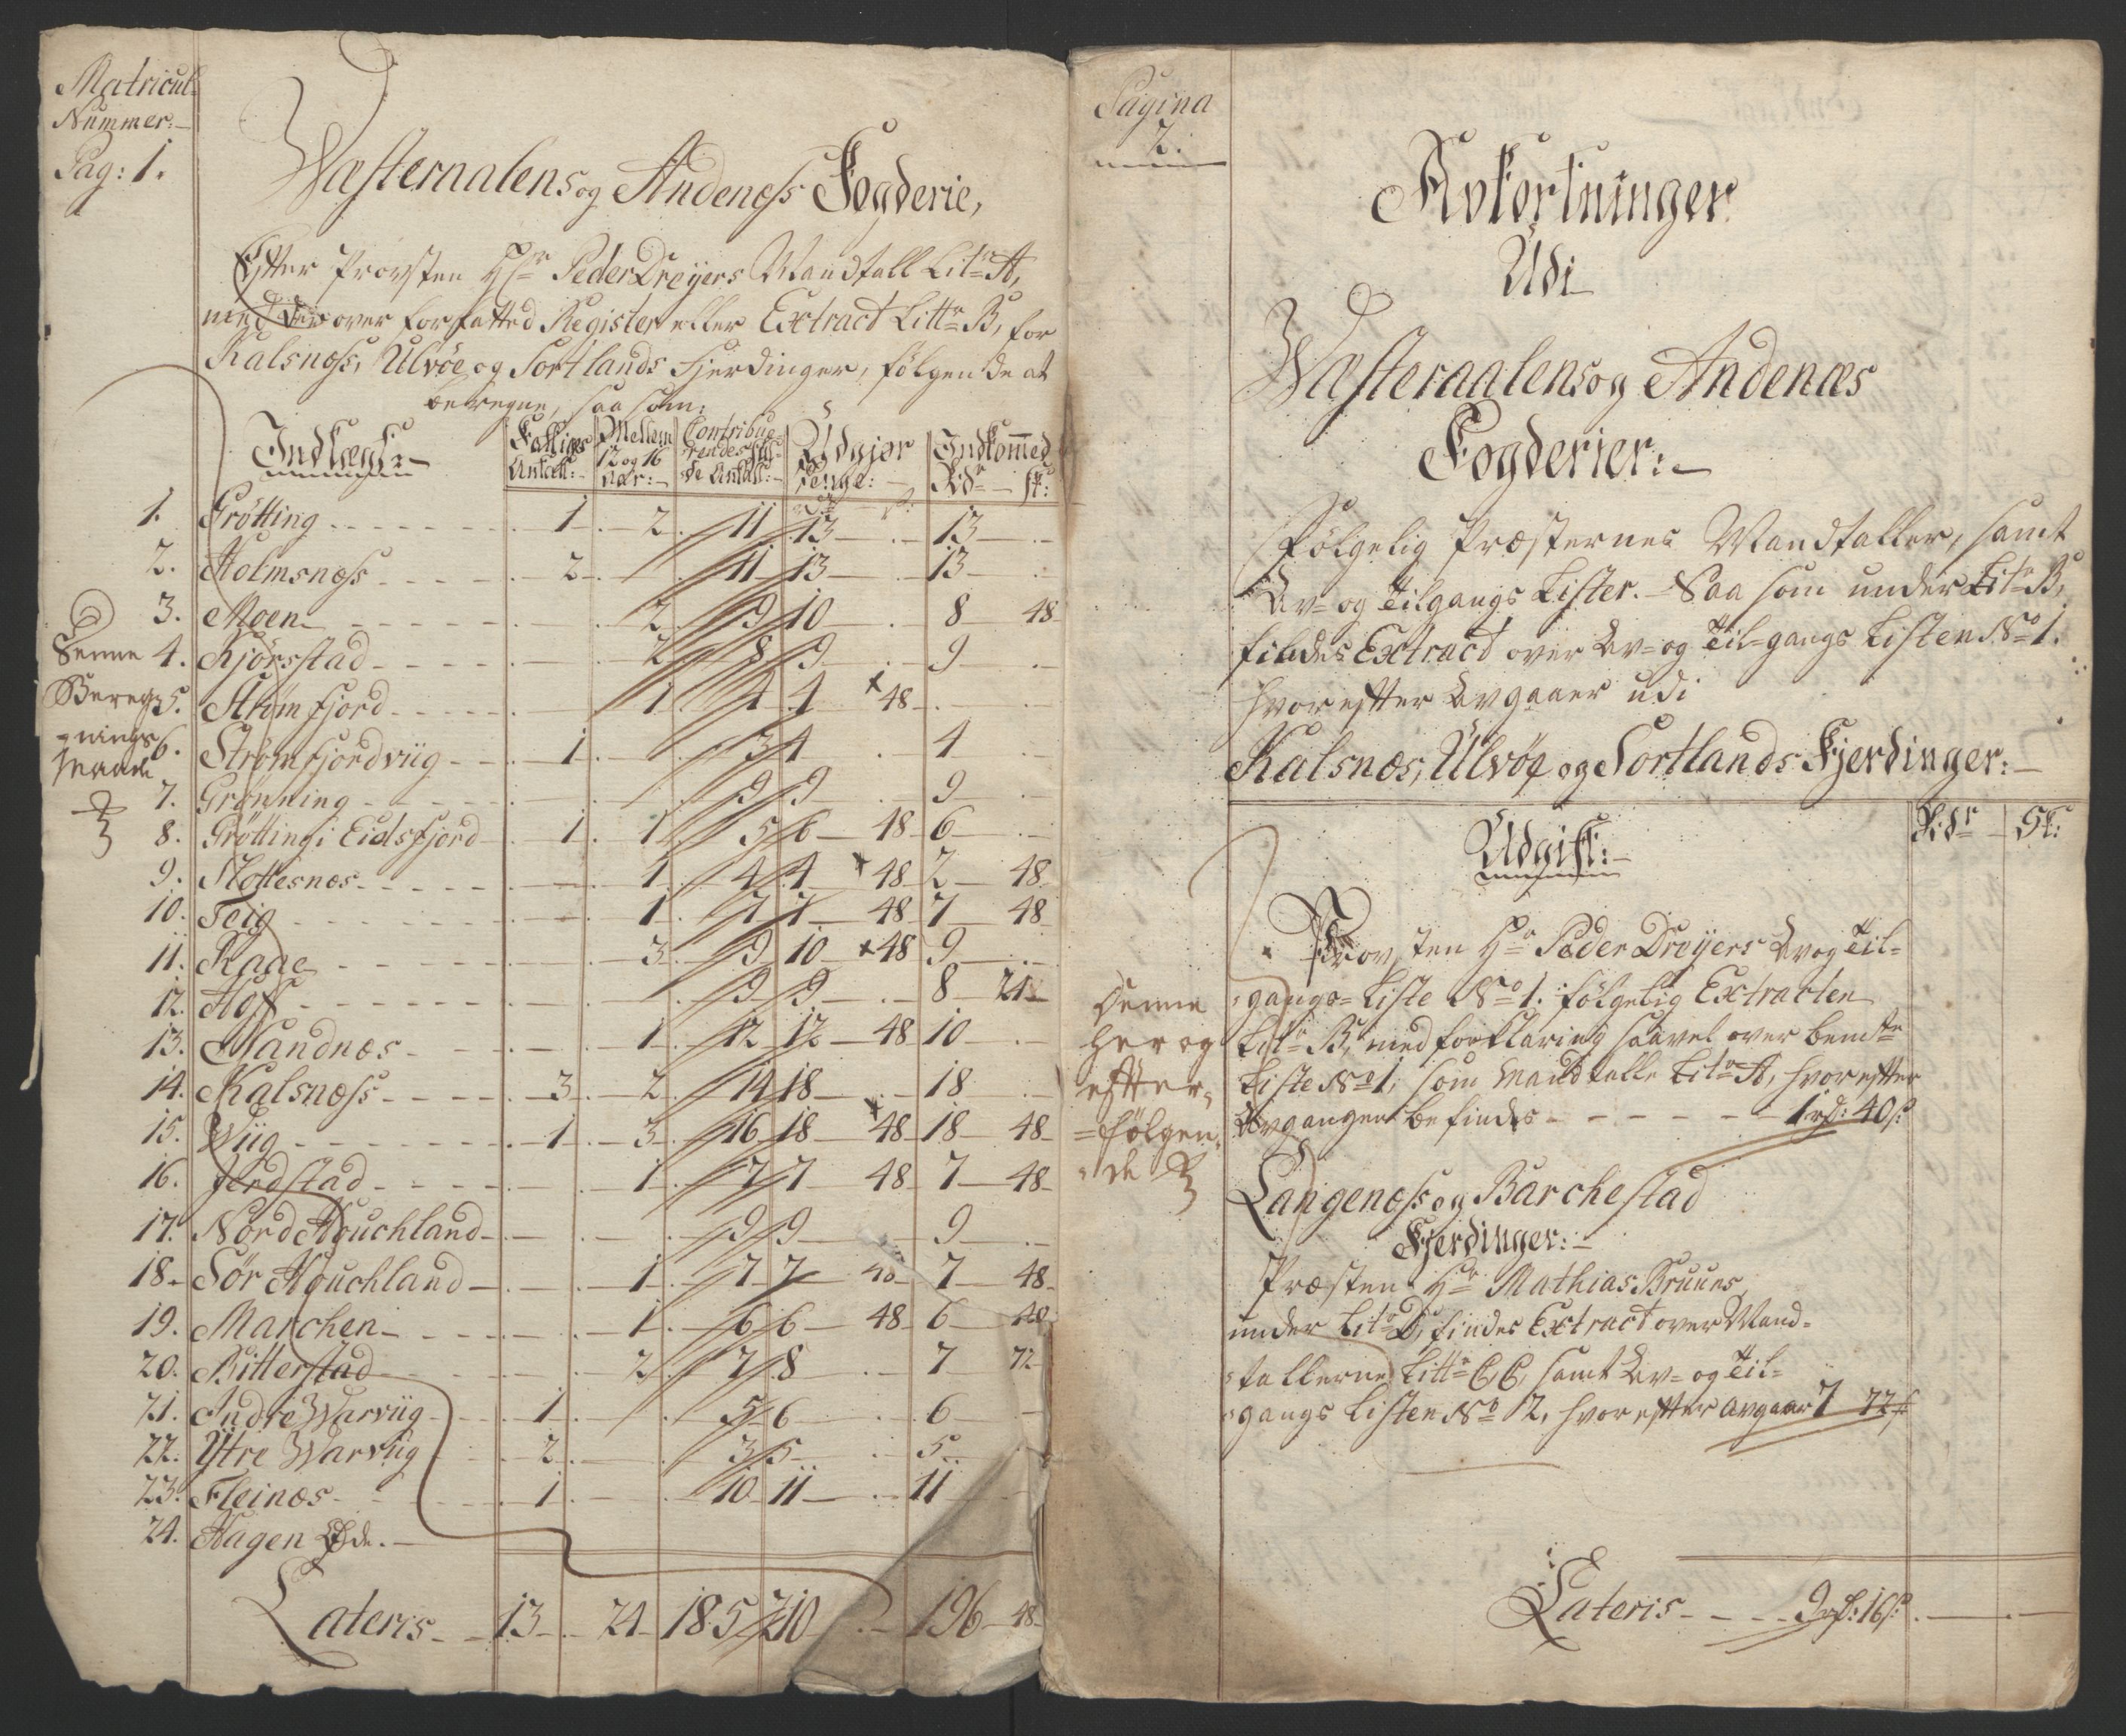 Matricul
Nummer:
Pag: 1.
Wæsternalens og Andenæss Fogderie,
Efter Provsten Hr. Peder Dreÿers Mandtall Litr: A,
med der over forfatted Register eller Extract Littr: B, for
Kalsnæss, Ulvöe og Sortlands Fjerdinger, fölgende at
beregne, saa som:
Indtægt: Fattiges Antall: Mellem 12 og 16 Aar: Contribuerendes fulde Antall: Udgiør Penge: Indkommed Rdr sk:
1. Frötting 1 2 11 13 13
2. Holmsnæss 2 11 13 13
3. Moen 2 9 10 8 48
Denne 4. Kjörsstad 2 8 9 9
Bereg 5. Strömfjord 1 4 4 48
gnings 6. Strömfjordviig 1 3 4 4
Maade 7. Grønning 9 9 9
8. Fröttingi Eidsfjord 1 1 5 6 48 6
9. Slottesnæs 1 4 4 48 2 48
10. Teig 1 7 7 48 7 48
11. Kaae 3 9 10 48 9
12. Hoff 9 9 8 24
13. Sandnæs 1 12 12 48 10
14. Kalsnæss 3 2 14 18 18
15. Wiig 1 3 16 18 48 18 48
16. Jerdstad 1 7 7 48 7 48
17. Nord Houchland 9 9 9
18. Sör Houchland 1 7 7 48 7 48
19. Marchen 1 6 6 48 6 48
20. Bitterstad 2 7 8 7 72
21. Indre Warviig 1 5 6 6
22. Ÿtre Warviig 2 3 5 5
23. Fleinæs 1 10 11 11
24. Hagen Øde.
Lateris 13 24 185 210 196 48
Pagina
2.
Avkortninger
Udi
Wæsteraalens og Andenæs
Fogderier:
Fölgelig Præsternes Mandtaller, samt
Av- og Tilgangs Lister. Saa som under Litr: B,
findes Extract over Av- og Til-gangs Listen No 1.
hvorefter Avgaaer udi
Kalsnæs, Ulvöe og Sortlands Fjerdinger:
Udgift: Rdr Sk:
Provsten Hr Peder Dreÿers Av og Til-
gangs-Liste No 1. fölgelig Extracten
Denne
her og
efter-
fölgen-
de
Litr: B, med forklaring saavel over bemte
Liste No 1, som Mandtalle Litr: A, hvorefter
Avgangen befindes 1 rd: 40 s
Langenæss og Barchestad
Fjerdinger:
Præsten Hr Mathias Bruuns
under Litr: D, findes Extract over Mand-
tallerne Littr: C, C, samt Av- og Til-
gangs Listen No 2, hvorefter avgaar 7 72 s
Lateris 9 rd: 16 s